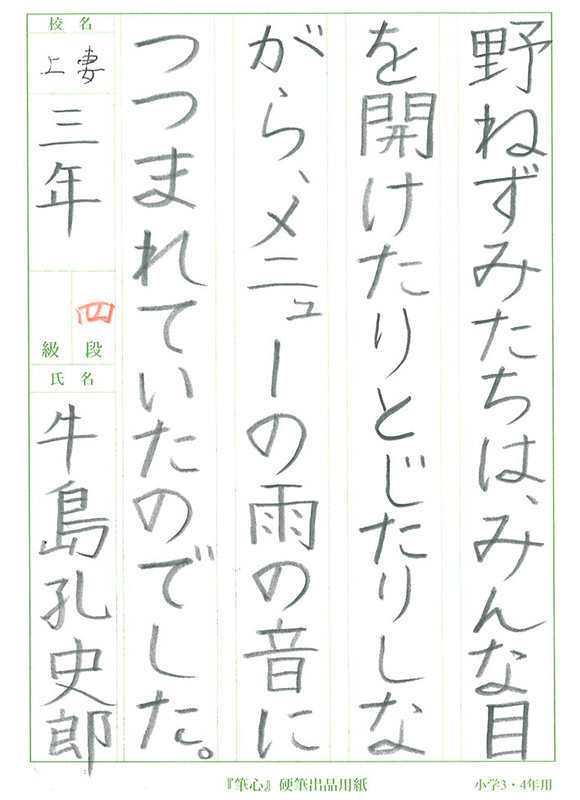 野ねずみたちは、みんな目
を開けたりとじたりしな
がら、メニューの雨の音に
つつまれていたのでした。
校名
上妻
三年
四
段
級
氏名
牛島孔史郎
『筆心』硬筆出品用紙
小学3・4年用